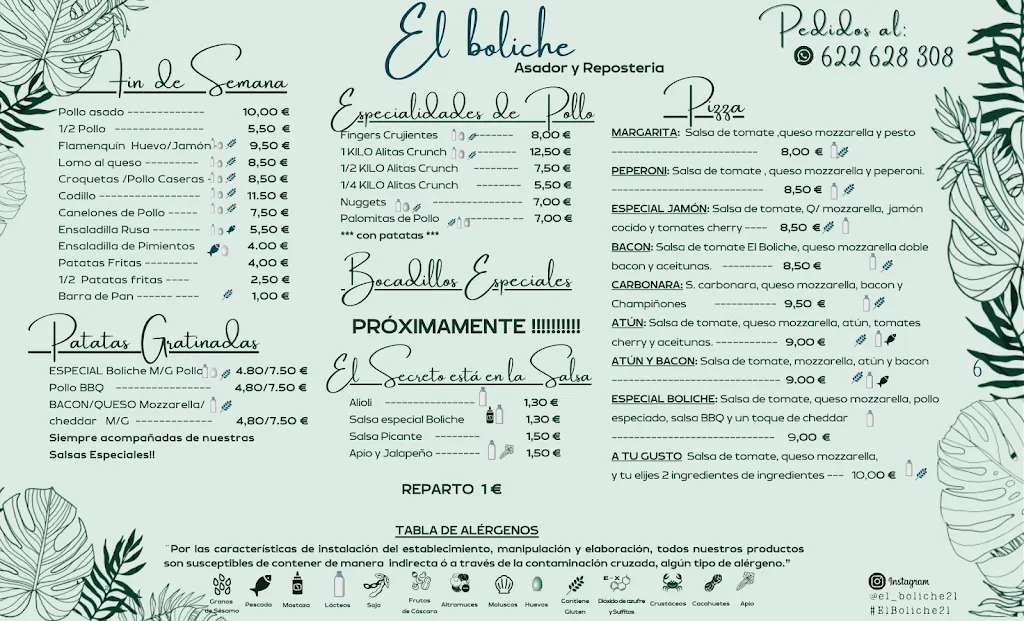 El boliche
Asador y Reposteria
Pedidos al:
622 628 308
Fin de Semana
Pollo asado -------------- 10,00 €
1/2 Pollo ---------------- 5,50 €
Flamenquín Huevo/Jamón 9,50 €
Lomo al queso ---------- 8,50 €
Croquetas /Pollo Caseras - 8,50 €
Codillo ---------------- 11.50 €
Canelones de Pollo ----- 7,50 €
Ensaladilla Rusa ------- 5,50 €
Ensaladilla de Pimientos 4.00 €
Patatas Fritas ---------- 4,00 €
1/2 Patatas fritas ---- 2,50 €
Barra de Pan ------ ---- 1,00 €
Patatas Gratinadas
ESPECIAL Boliche M/G Pollo 4.80/7.50 €
Pollo BBQ ----------------- 4,80/7.50 €
BACON/QUESO Mozzarella/
cheddar M/G ------------- 4,80/7.50 €
Siempre acompañadas de nuestras
Salsas Especiales!!
Especialidades de Pollo
Fingers Crujientes ------- 8,00 €
1 KILO Alitas Crunch -------- 12,50 €
1/2 KILO Alitas Crunch -------- 7,50 €
1/4 KILO Alitas Crunch -------- 5,50 €
Nuggets --------------- 7,00 €
Palomitas de Pollo --------- -- 7,00 €
*** con patatas ***
Bocadillos Especiales
PRÓXIMAMENTE !!!!!!!!!!
El Secreto está en la Salsa
Alioli ------------------ 1,30 €
Salsa especial Boliche 1,30 €
Salsa Picante --------- 1,50 €
Apio y Jalapeño --------- 1,50 €
REPARTO 1 €
Pizza
MARGARITA: Salsa de tomate ,queso mozzarella y pesto
----------------------------- 8,00 €
PEPERONI: Salsa de tomate , queso mozzarella y peperoni.
------------------------------ 8,50 €
ESPECIAL JAMÓN: Salsa de tomate, Q/ mozzarella, jamón
cocido y tomates cherry ---- 8,50 €
BACON: Salsa de tomate El Boliche, queso mozzarella doble
bacon y aceitunas. --------- 8,50 €
CARBONARA: S. carbonara, queso mozzarella, bacon y
Champiñones ------------ 9,50 €
ATÚN: Salsa de tomate, queso mozzarella, atún, tomates
cherry y aceitunas. ----------- 9,00 €
ATÚN Y BACON: Salsa de tomate, mozzarella, atún y bacon
------------------------------ 9.00 €
ESPECIAL BOLICHE: Salsa de tomate, queso mozzarella, pollo
especiado, salsa BBQ y un toque de cheddar
------------------------------ 9,00 €
A TU GUSTO Salsa de tomate, queso mozzarella,
y tu elijes 2 ingredientes de ingredientes --- 10,00 €
6
TABLA DE ALÉRGENOS
¨Por las características de instalación del establecimiento, manipulación y elaboración, todos nuestros productos
son susceptibles de contener de manera indirecta ó a través de la contaminación cruzada, algún tipo de alérgeno.”
Granos de Sésamo
Pescado
Mostaza
Lácteos
Soja
Frutos de Cáscara
Altramuces
Moluscos
Huevos
Contiene Gluten
Dióxido de azufre y Sulfitos
Crustáceos
Cacahuetes
Apio
Instagram
@el_boliche21
#ElBoliche21